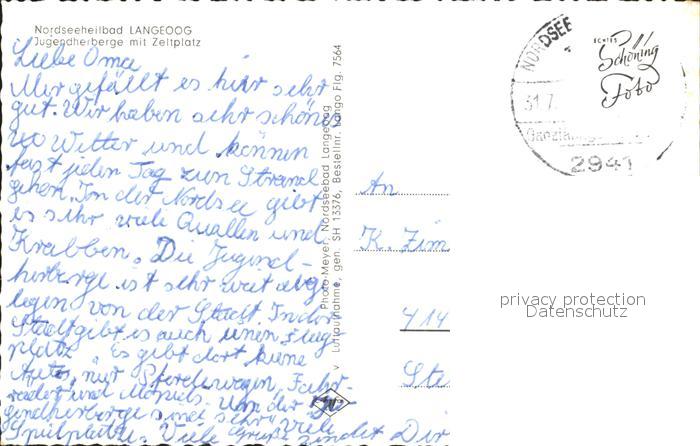 Nordseeheilbad LANGEOOG
Jugendherberge mit Zeltplatz
Liebe Oma
Mir gefällt es hier sehr
gut. Wir haben sehr schönes
Wetter und können
fast jeden Tag zum Strand
gehen. In der Nordsee gibt
es sehr viele Quallen und
Krabben. Die Jugend-
herberge ist sehr weit abge
legen von der Stadt. In der
Stadt gibt es auch einen Flug
platz. Es gibt dort keine
Autos, nur Pferdewagen, Fahr-
räder und Mopeds. Um der Ju
gendherberge sind sehr viele
Spielplätze. Viele Grüße sendet Dir
Photo-Meyer, Nordseebad Langeoog
Luftaufnahme, gen. SH 13376, Bestellnr. Lango Flg. 7564
NORDSEE
31.7.
2941
ECHTES
Schöning
Foto
An
K. Zim
414
Ste
privacy protection
Datenschutz